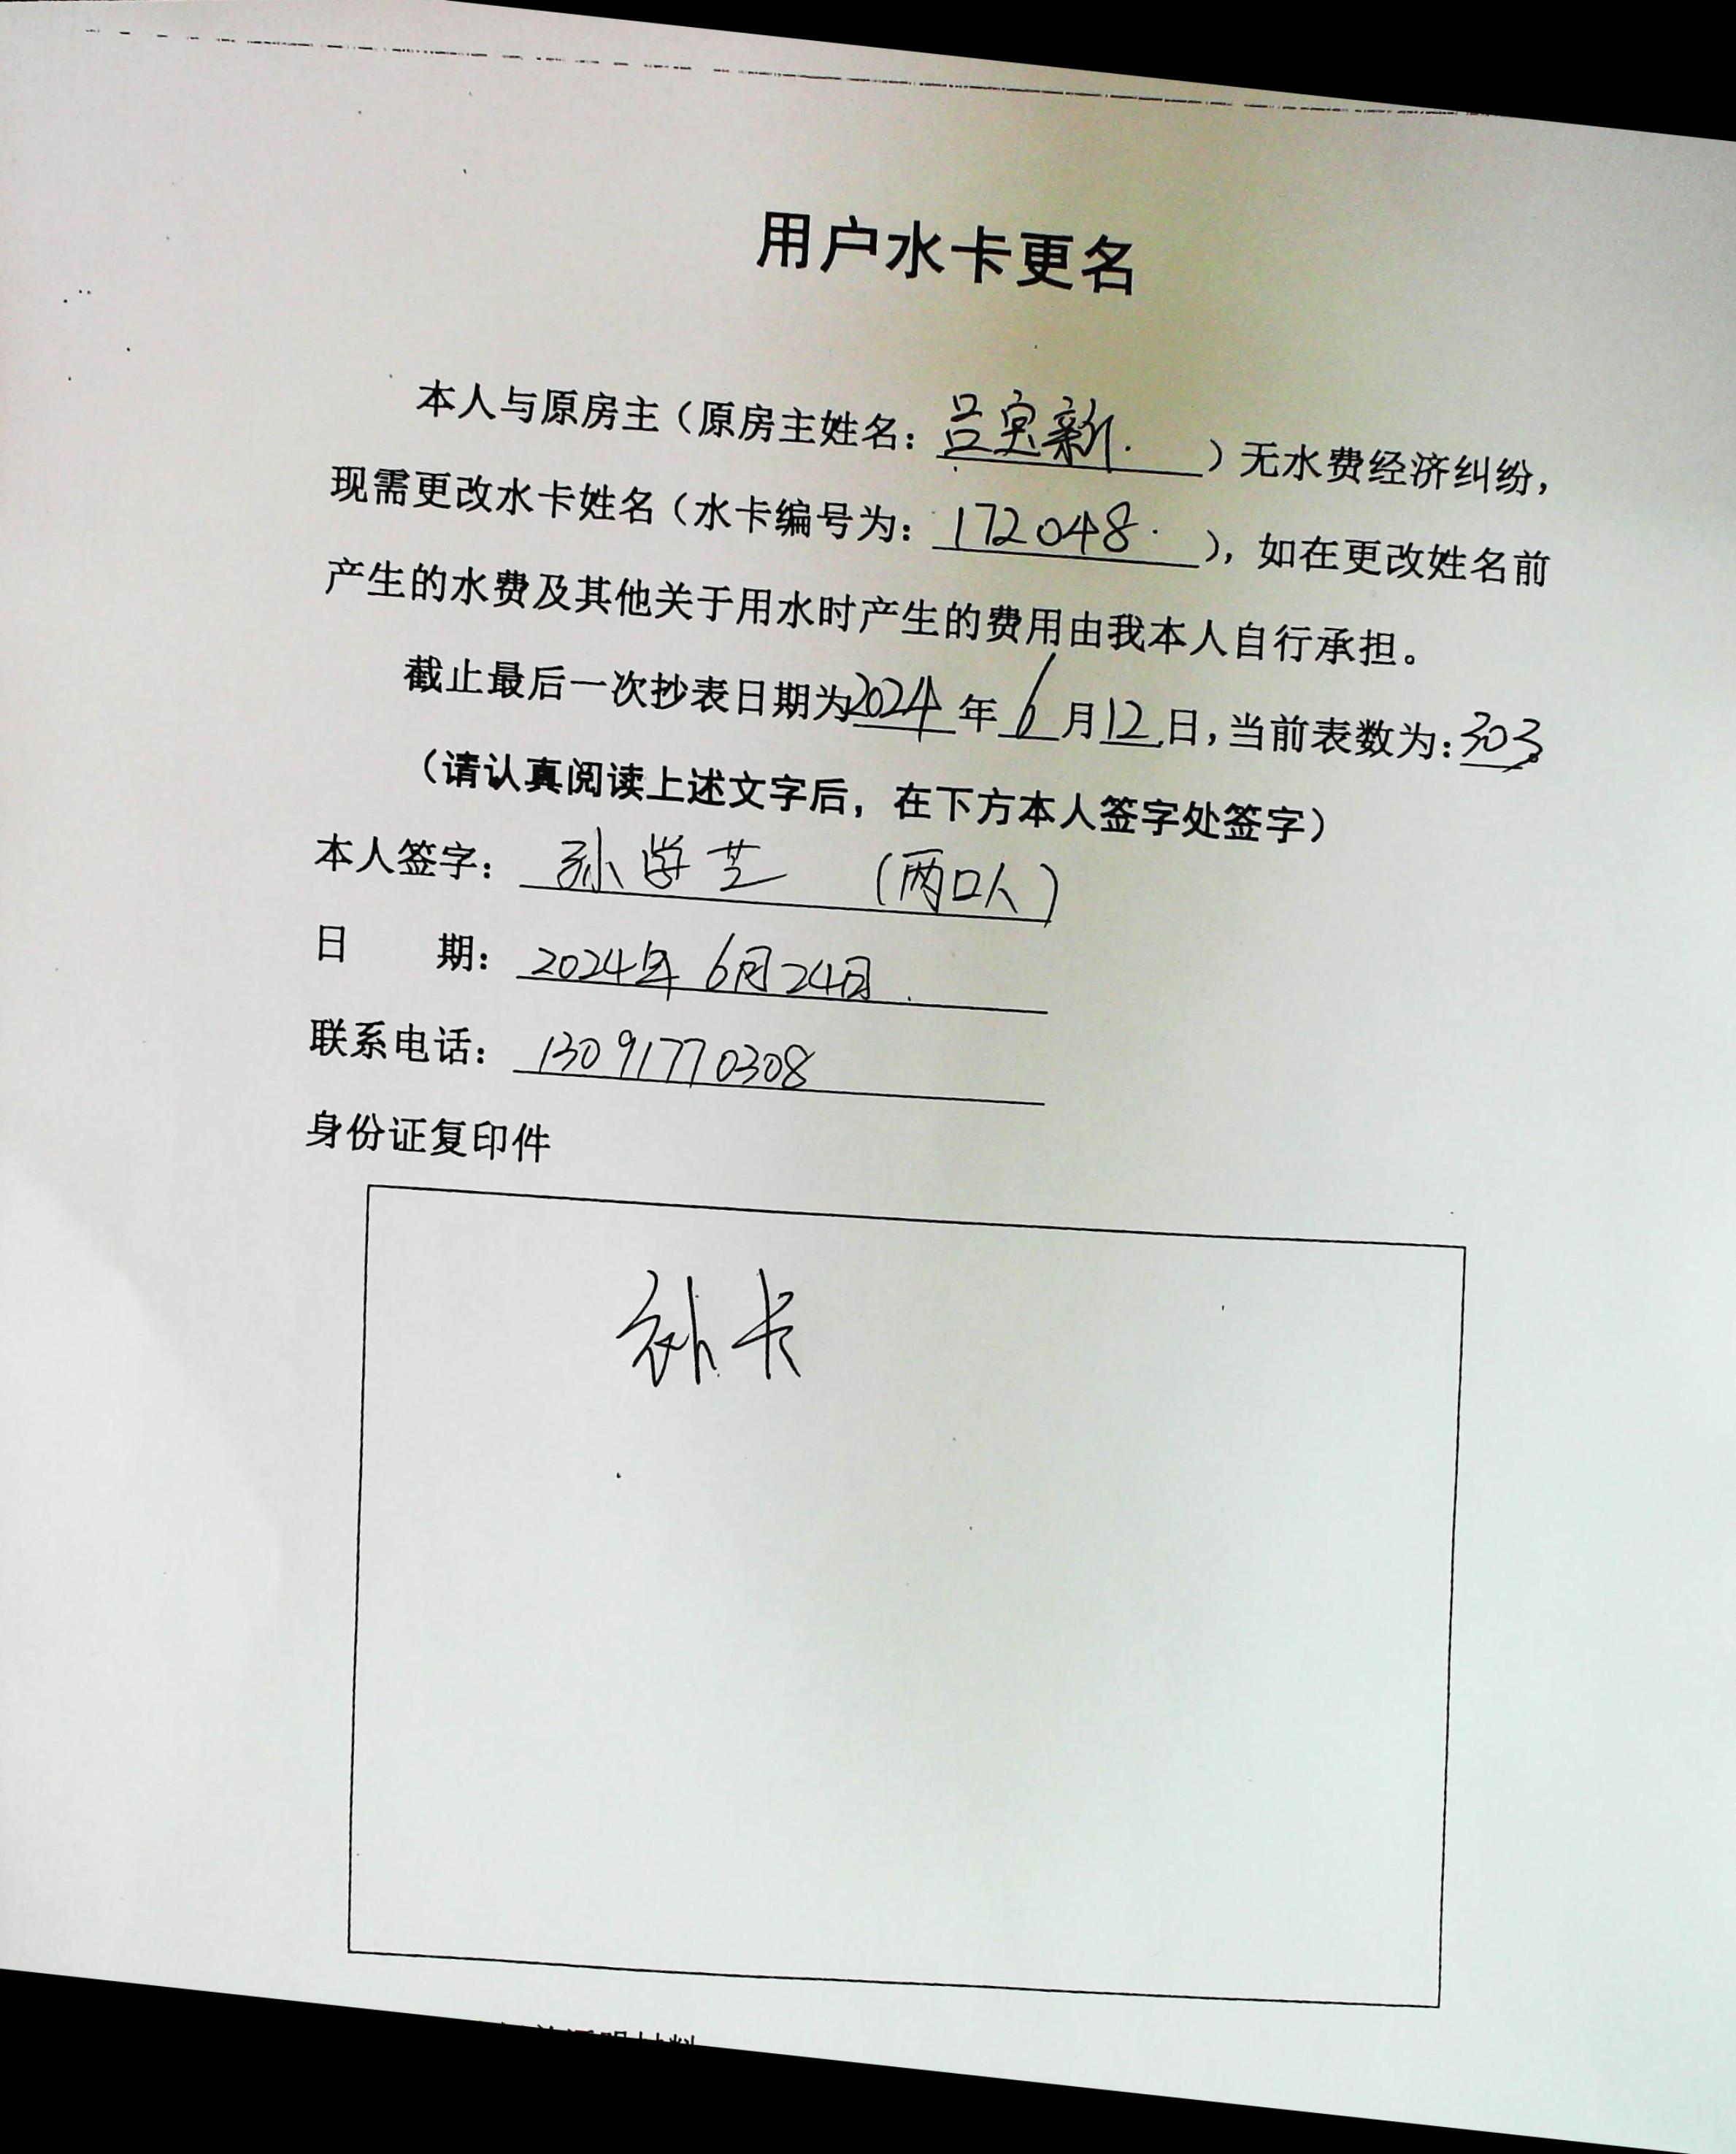 用户水卡更名
本人与原房主（原房主姓名：吕宝新.）无水费经济纠纷，
现需更改水卡姓名（水卡编号为：172048.），如在更改姓名前
产生的水费及其他关于用水时产生的费用由我本人自行承担。
截止最后一次抄表日期为2024年6月12日，当前表数为：303。
（请认真阅读上述文字后，在下方本人签字处签字）
本人签字：孙学芝 （两口人）
日 期：2024年6月24日.
联系电话：13091770308
身份证复印件
补卡